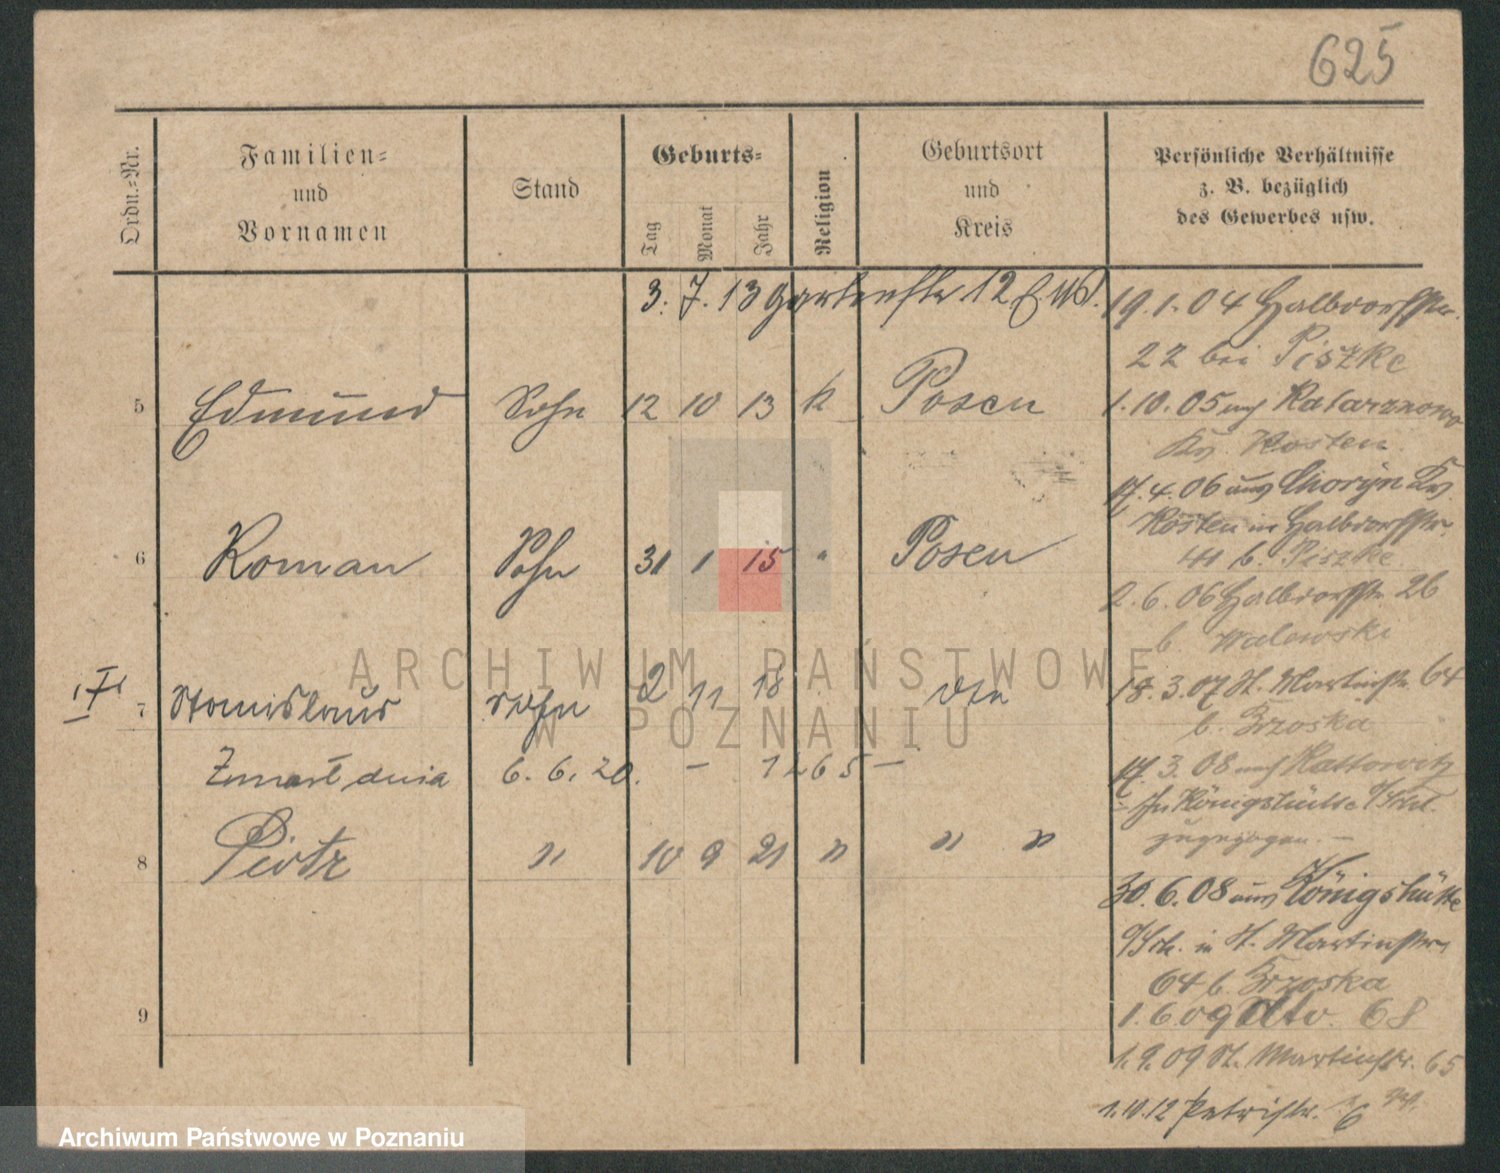 625
Ordn.-Nr.
Familien-
und
Vornamen
Stand
Geburts-
Tag
Monat
Jahr
Religion
Geburtsort
und
Kreis
Persönliche Verhältnisse
z. B. bezüglich
des Gewerbes usw.
3. 7. 13 Gartenstr 12
5 Edmund Sohn 12 10 13 k Posen
6 Roman Sohn 31 1 15 " Posen
7 Stanislaus Sohn 2 11 18
Zmarł dnia 6. 6. 20. – 1265 –
8 Piotr " 10 9 21 " " "
9
19.1.04 Halbdorfstr.
22 bei Piszke
1.10.05 nach Katarznowo
Kr. Kosten
17.4.06 aus Choryn Kr.
Kosten in Halbdorfstr.
b. Piszke
2.6.06 Halbdorfstr. 26
b. Walewski
18.3.07 St. Martinstr. 64
b. Brzoska
17.3.08 nach Kattowitz
In Königshütte O/Schl.
zugezogen. –
30.6.08 aus Königshütte
O/Sch. in St. Martinstr.
64 b. Brzoska
1.6.09 dto. 68
1.9.09 St. Martinstr. 65
1.10.12 Petristr. 6
ARCHIWUM PAŃSTWOWE
W POZNANIU
Archiwum Państwowe w Poznaniu